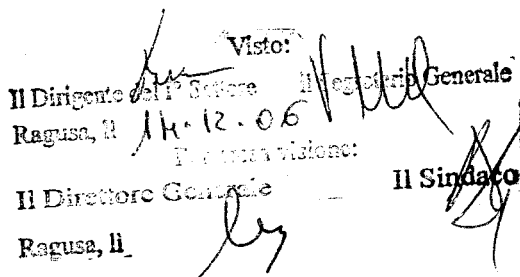 Visto:
Il Dirigente del I° Settore Il Segretario Generale
Ragusa, lì 14.12.06
Per presa visione:
Il Direttore Generale Il Sindaco
Ragusa, lì_